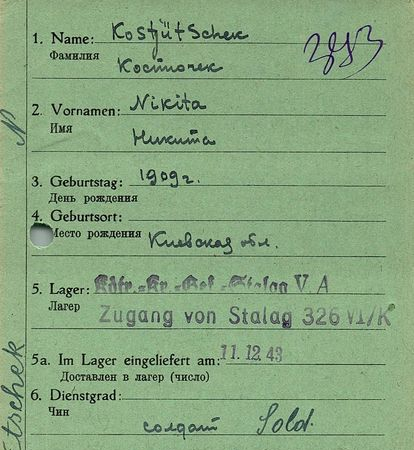 1. Name: Kostjütschek
Фамилия
Костючек
2. Vornamen: Nikita
Имя
Никита
3. Geburtstag: 1909 г.
День рождения
4. Geburtsort:
Место рождения Киевская обл.
5. Lager: Kdtr.-Kr.-Gef.-Stalag V. A
Лагер
Zugang von Stalag 326 VI/K
5a. Im Lager eingeliefert am: 11.12.43
Доставлен в лагер (число)
6. Dienstgrad:
Чин
солдат Sold.
tschek
N